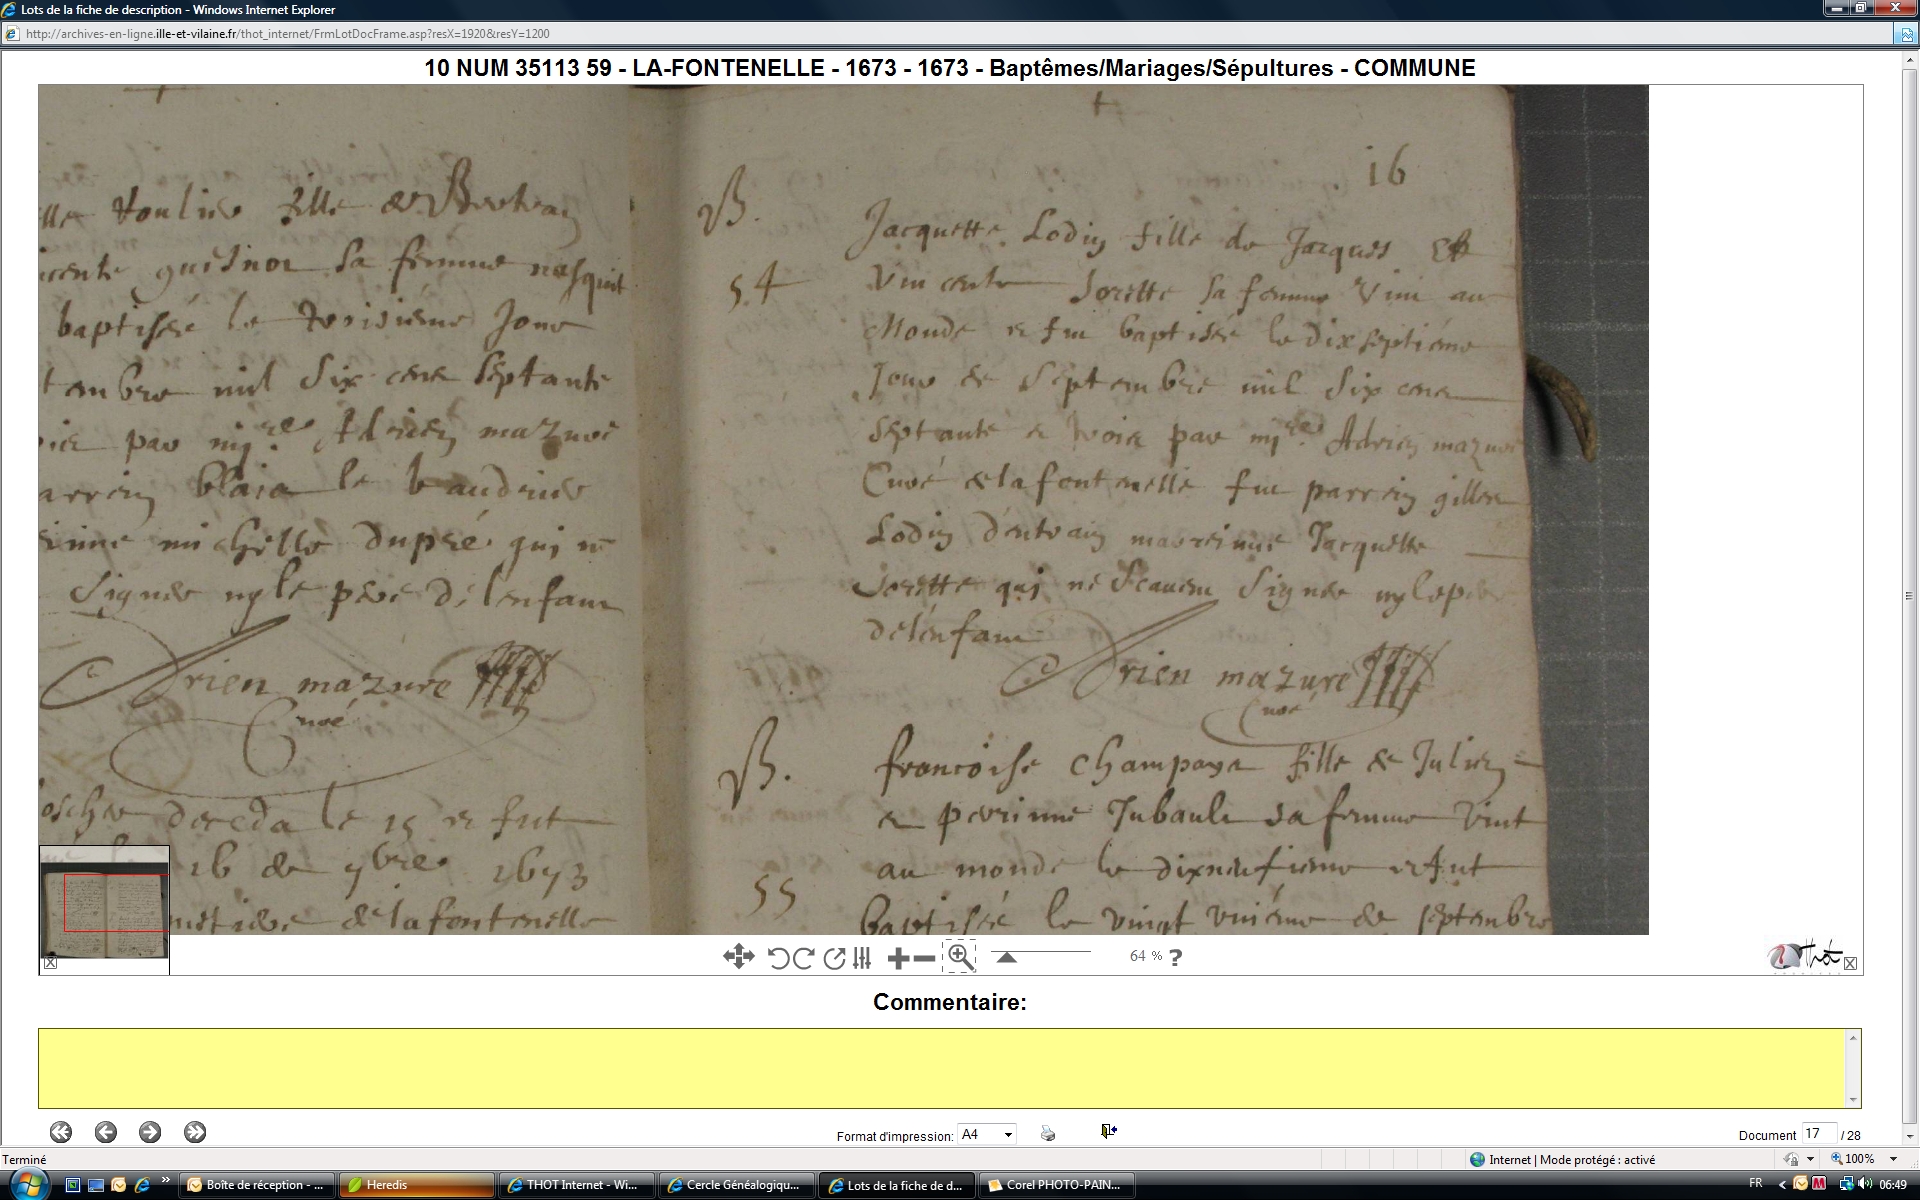 Lots de la fiche de description - Windows Internet Explorer
http://archives-en-ligne.ille-et-vilaine.fr/thot_internet/FrmLotDocFrame.asp?resX=1920&resY=1200
10 NUM 35113 59 - LA-FONTENELLE - 1673 - 1673 - Baptêmes/Mariages/Sépultures - COMMUNE
fille de Bertran
sa femme nasquit
baptisée le troisième Jour
tembre mil six cens septante
par Adrien mazure
blaise le baudrier
michelle dupré qui ne
signer ny le père de lenfant
Adrien mazure
Curé
deceda le 15 et fut
16 de 7bre 1673
metiere de la fontenelle
16
B.
54
Jacquette Lodin fille de Jacques et
Vincente Sorette sa femme Vint au
Monde et fut baptisée le dixseptième
Jour de Septembre mil six cens
septante et trois par mire Adrien mazure
Curé de la fontenelle fut parrein gilles
Lodin d'entrain marreinne Jacquette
Sorette qui ne scavent signer ny le père
de lenfant
Adrien mazure
Curé
B.
55
francoise Champaya fille de Julien
et perinne Jubault sa femme Vint
au monde le dixneufieme et fut
baptisée le vingt unième de septembre
64 % ?
Thot
Commentaire:
Format d'impression: A4
Document 17 / 28
Terminé
Internet | Mode protégé : activé
100%
Boîte de réception - ...
Heredis
THOT Internet - Wi...
Cercle Généalogiqu...
Lots de la fiche de d...
Corel PHOTO-PAIN...
FR
06:49